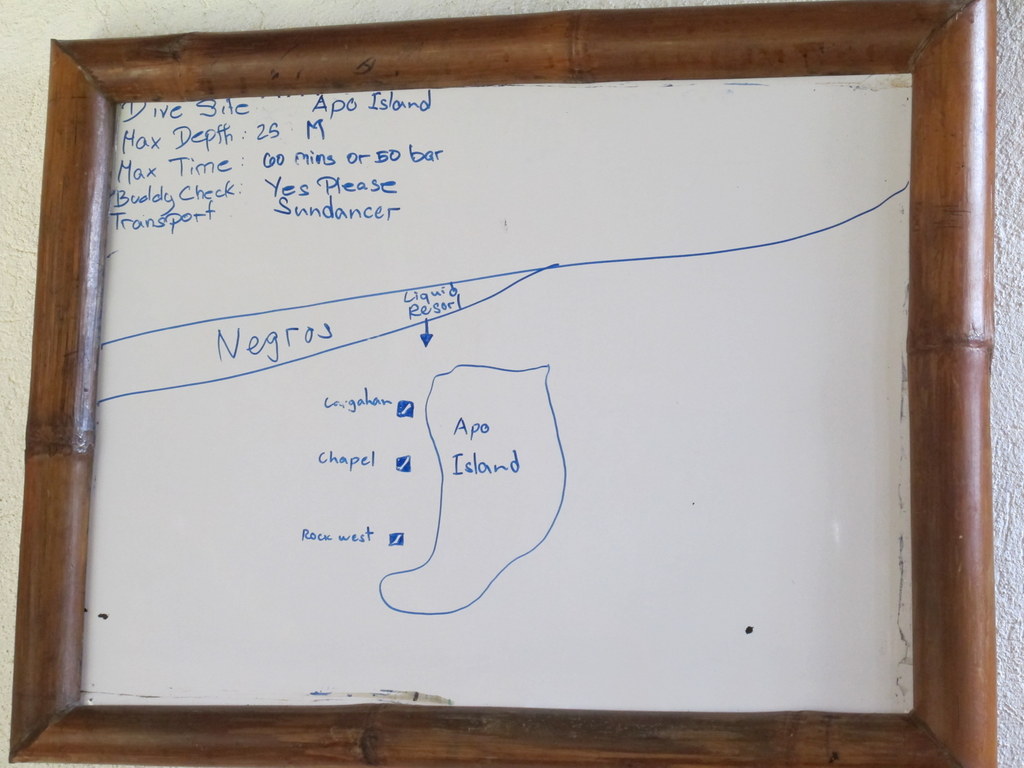 Dive Site Apo Island
Max Depth: 25 M
Max Time: 60 mins or 50 bar
Buddy Check: Yes Please
Transport Sundancer
Liquid
Resort
Negros
Apo
Island
Chapel
Rock west